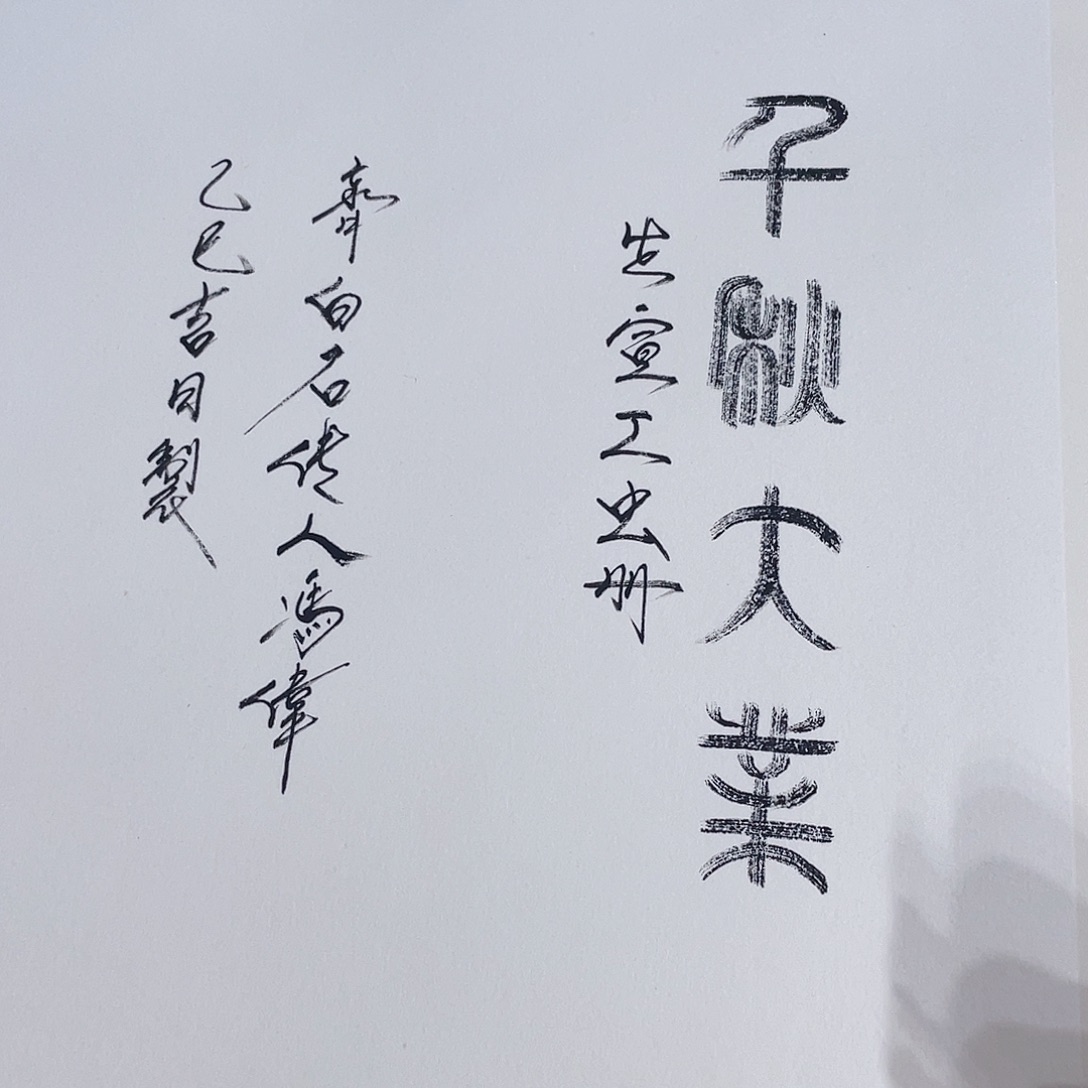 千秋大業
生宣工虫册
齊白石传人馮偉
乙巳吉日製